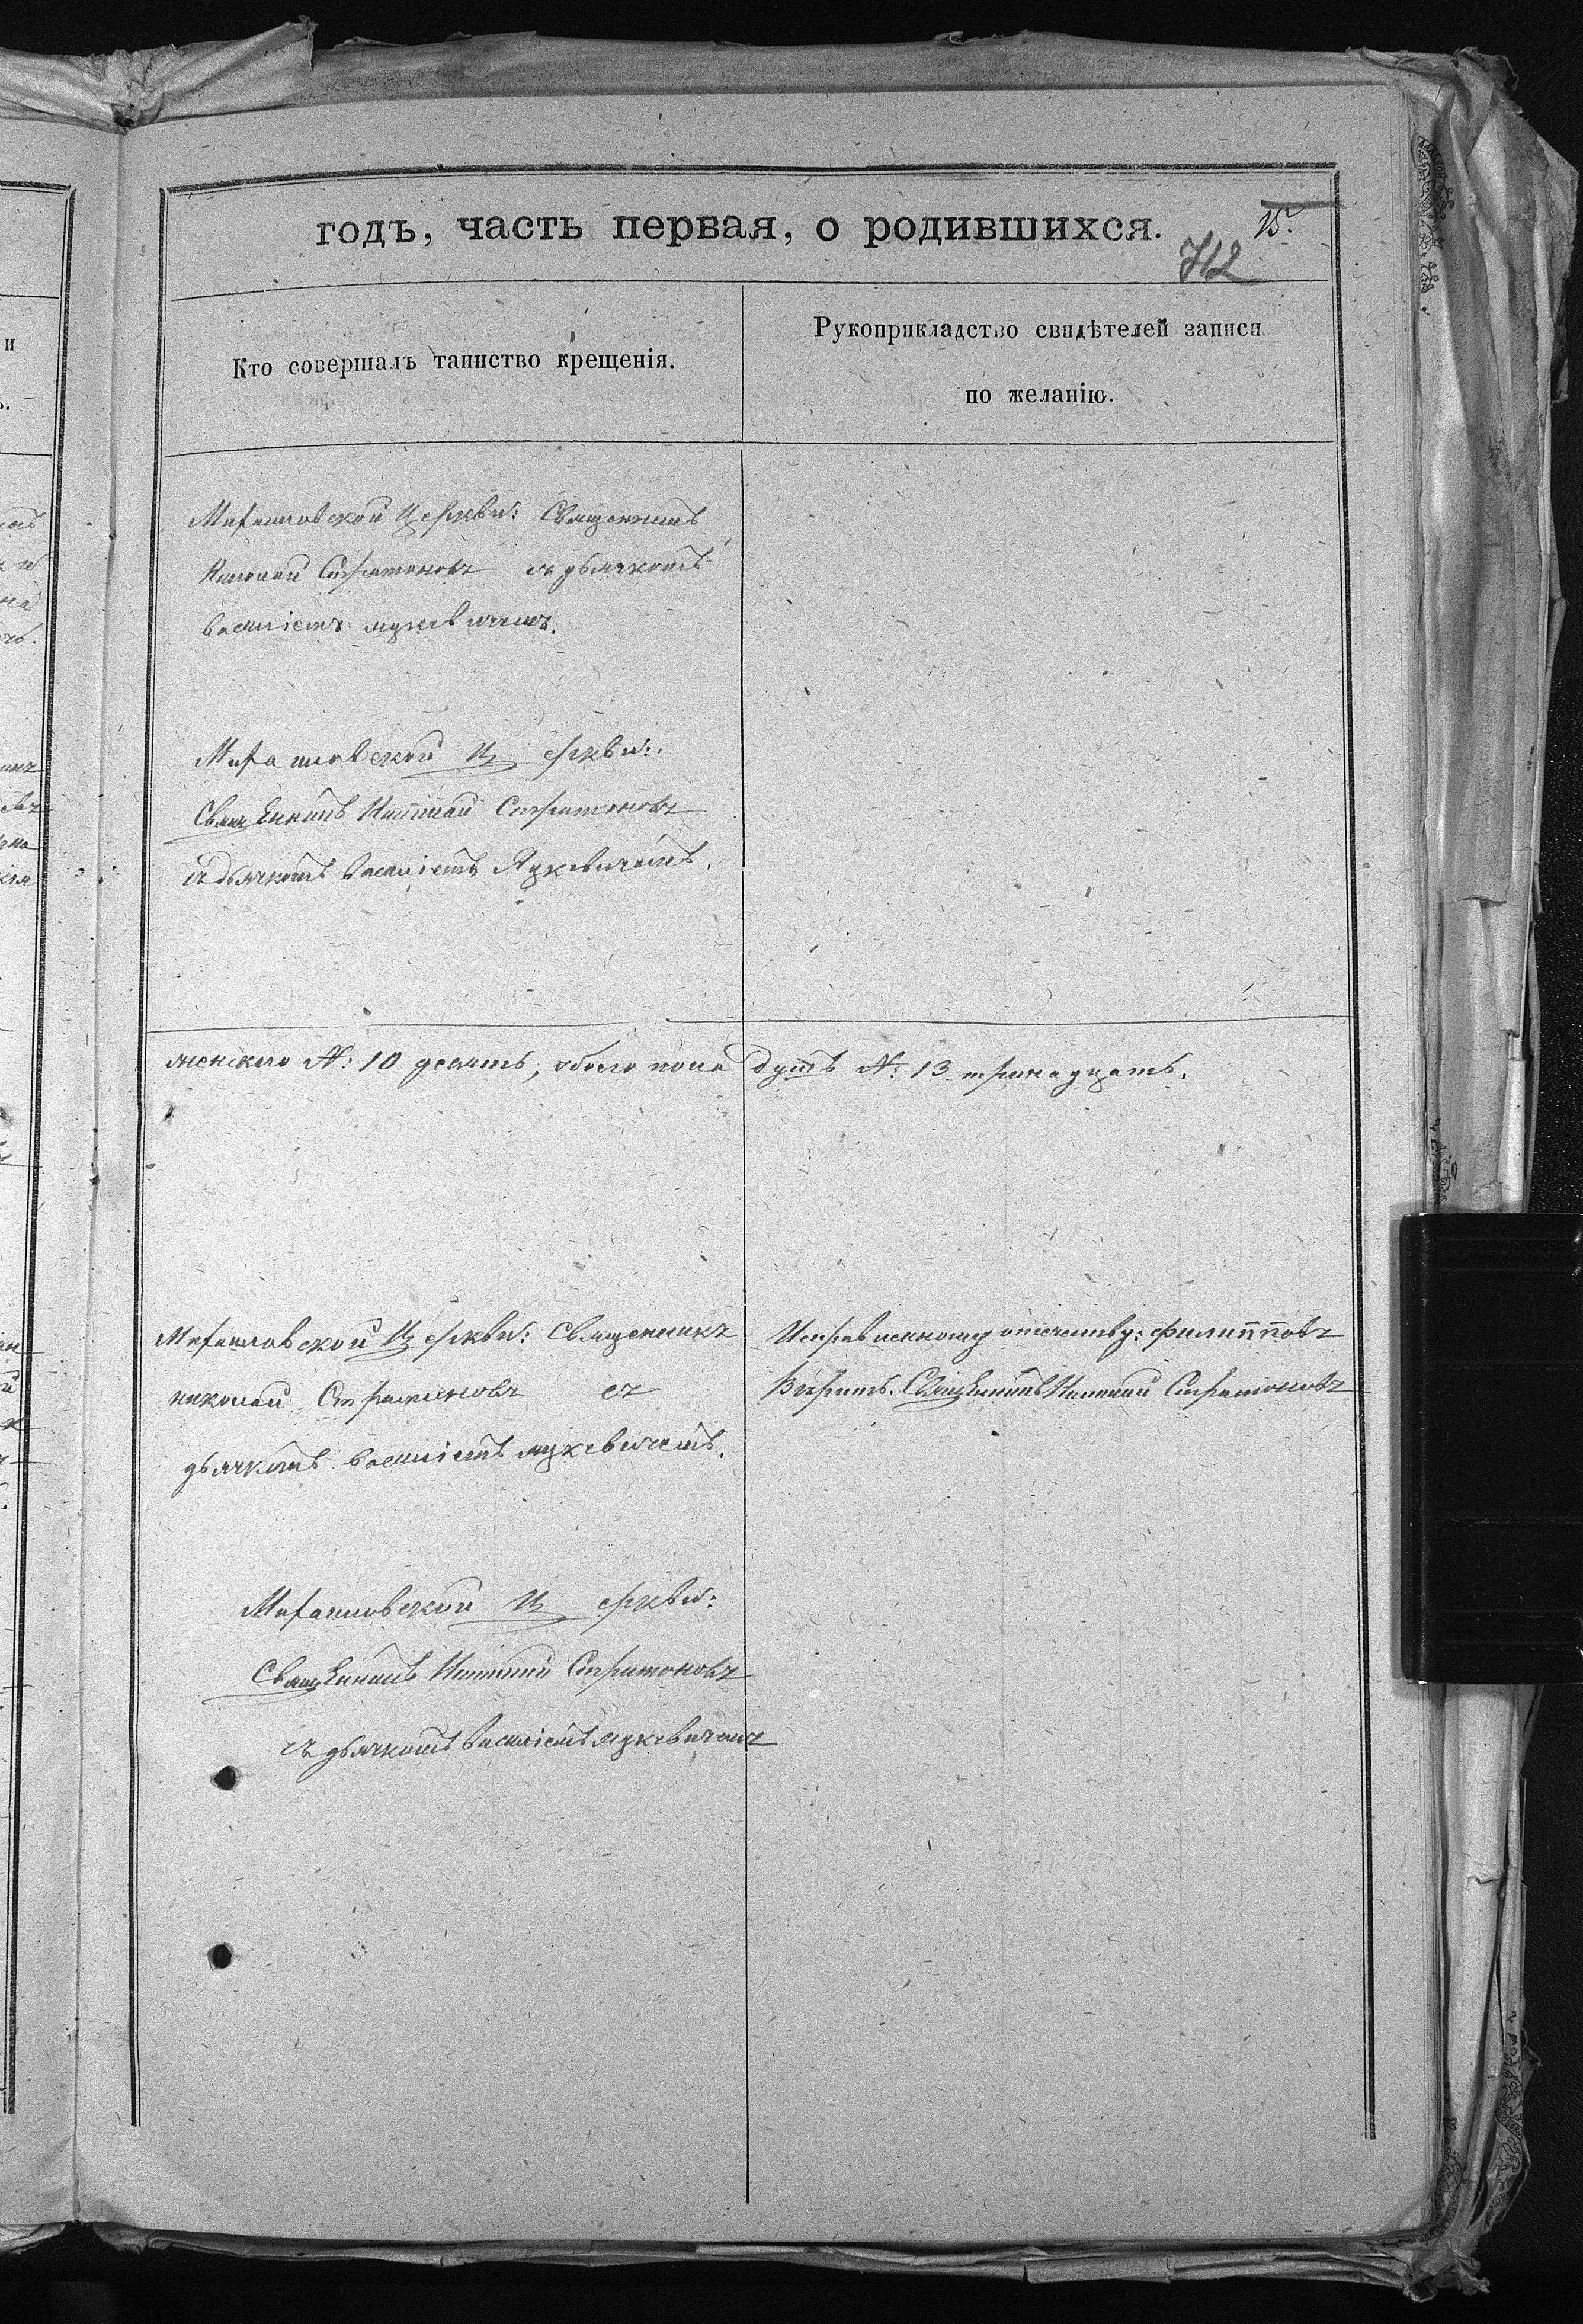 годъ, часть первая, о родившихся.
15.
712
Кто совершалъ таинство крещенія.
Рукоприкладство свидѣтелей записи
по желанію.
Михаиловской Церкви: Священникъ
Николай Стратоновъ съ дьячкомъ
василіемъ яцкевичемъ.
Михаиловской Церкви:
Священникъ Николай Стратоновъ
съ дьячкомъ Василіемъ Яцкевичемъ.
женскаго №: 10 десять, обоего пола душъ №: 13 тринадцать.
Михаиловской Церкви: Священникъ
николай Стратоновъ съ
дьячкомъ василіемъ яцкевичемъ.
Исправленному отечеству: Филипповъ
вѣрить. Священникъ Николай Стратоновъ
Михаиловской Церкви:
Священникъ Николай Стратоновъ
съ дьячкомъ Василіемъ Яцкевичемъ